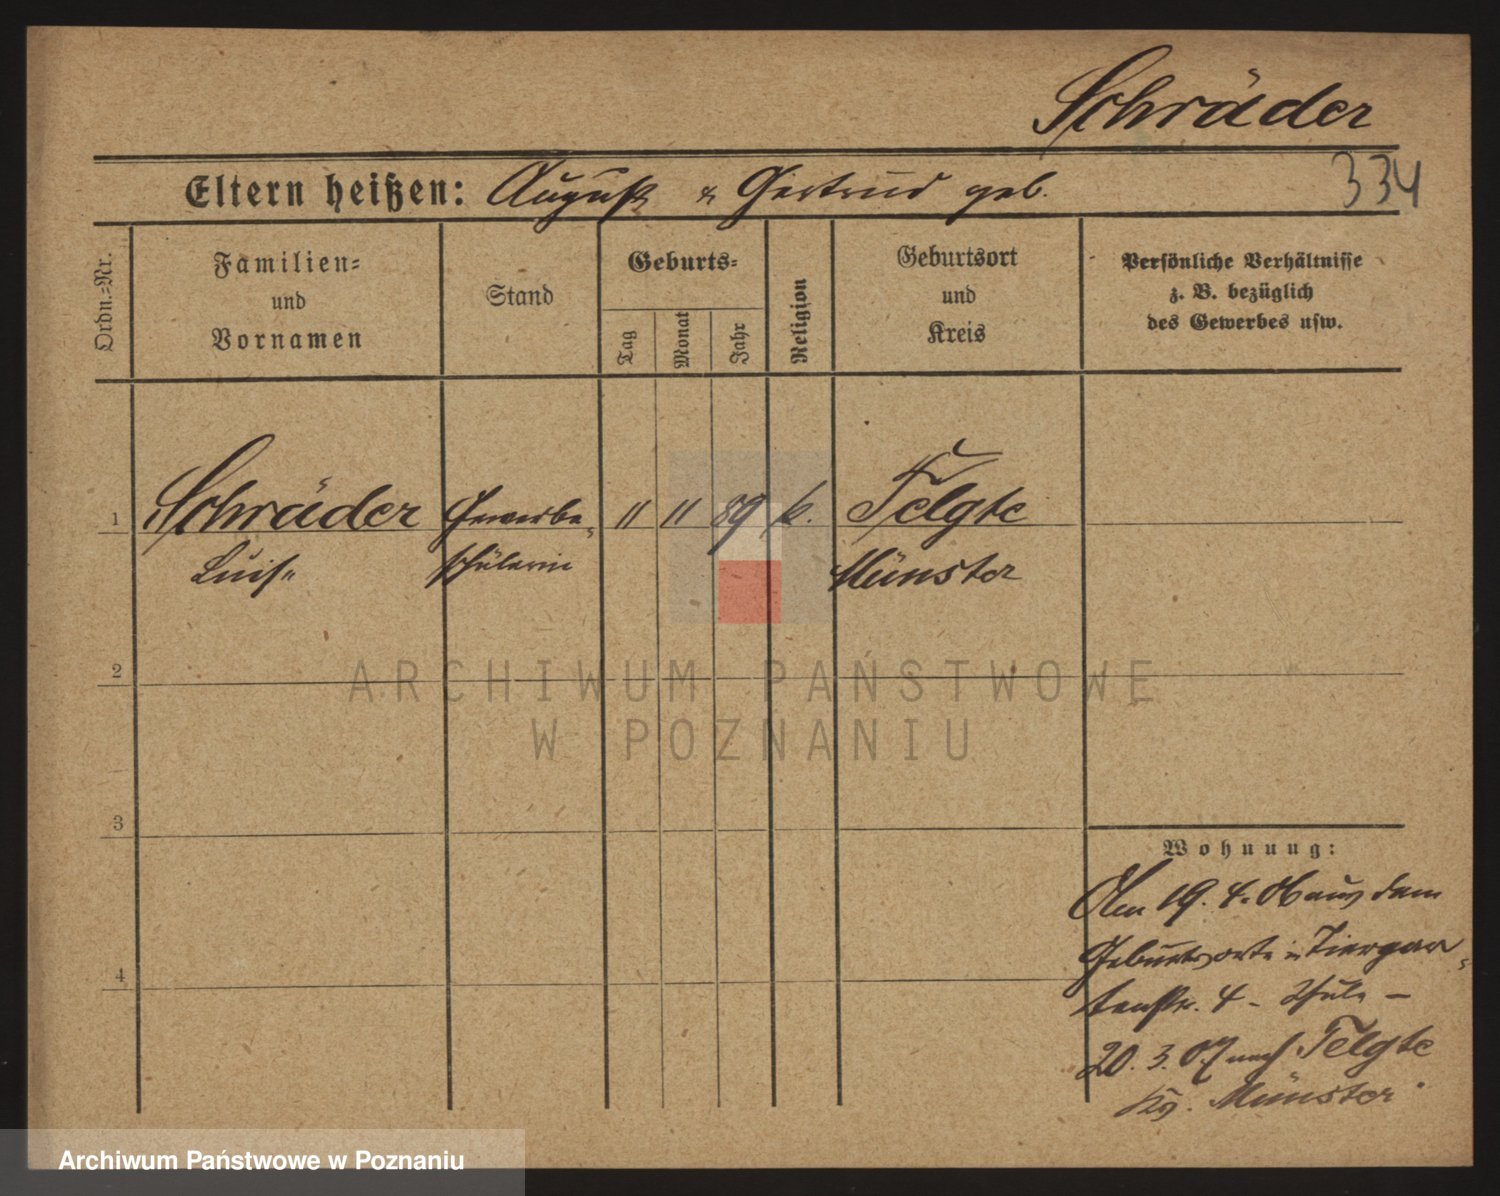 Schräder
334
Eltern heißen: August u Gertrud geb.
Ordn.-Nr.
Familien-
und
Vornamen
Stand
Geburts-
Tag
Monat
Jahr
Religion
Geburtsort
und
Kreis
Persönliche Verhältnisse
z. B. bezüglich
des Gewerbes usw.
1 Schräder Gewerbe- 11 11 89 k. Telgte
Luise schülerin Münster
2
ARCHIWUM PAŃSTWOWE
W POZNANIU
3
Wohnung:
Am 19. 4. 06 aus dem
Geburtsorte in Tiergar-
tenstr. 4 - Schule -
4
20. 3. 07 nach Telgte
Münster
Archiwum Państwowe w Poznaniu